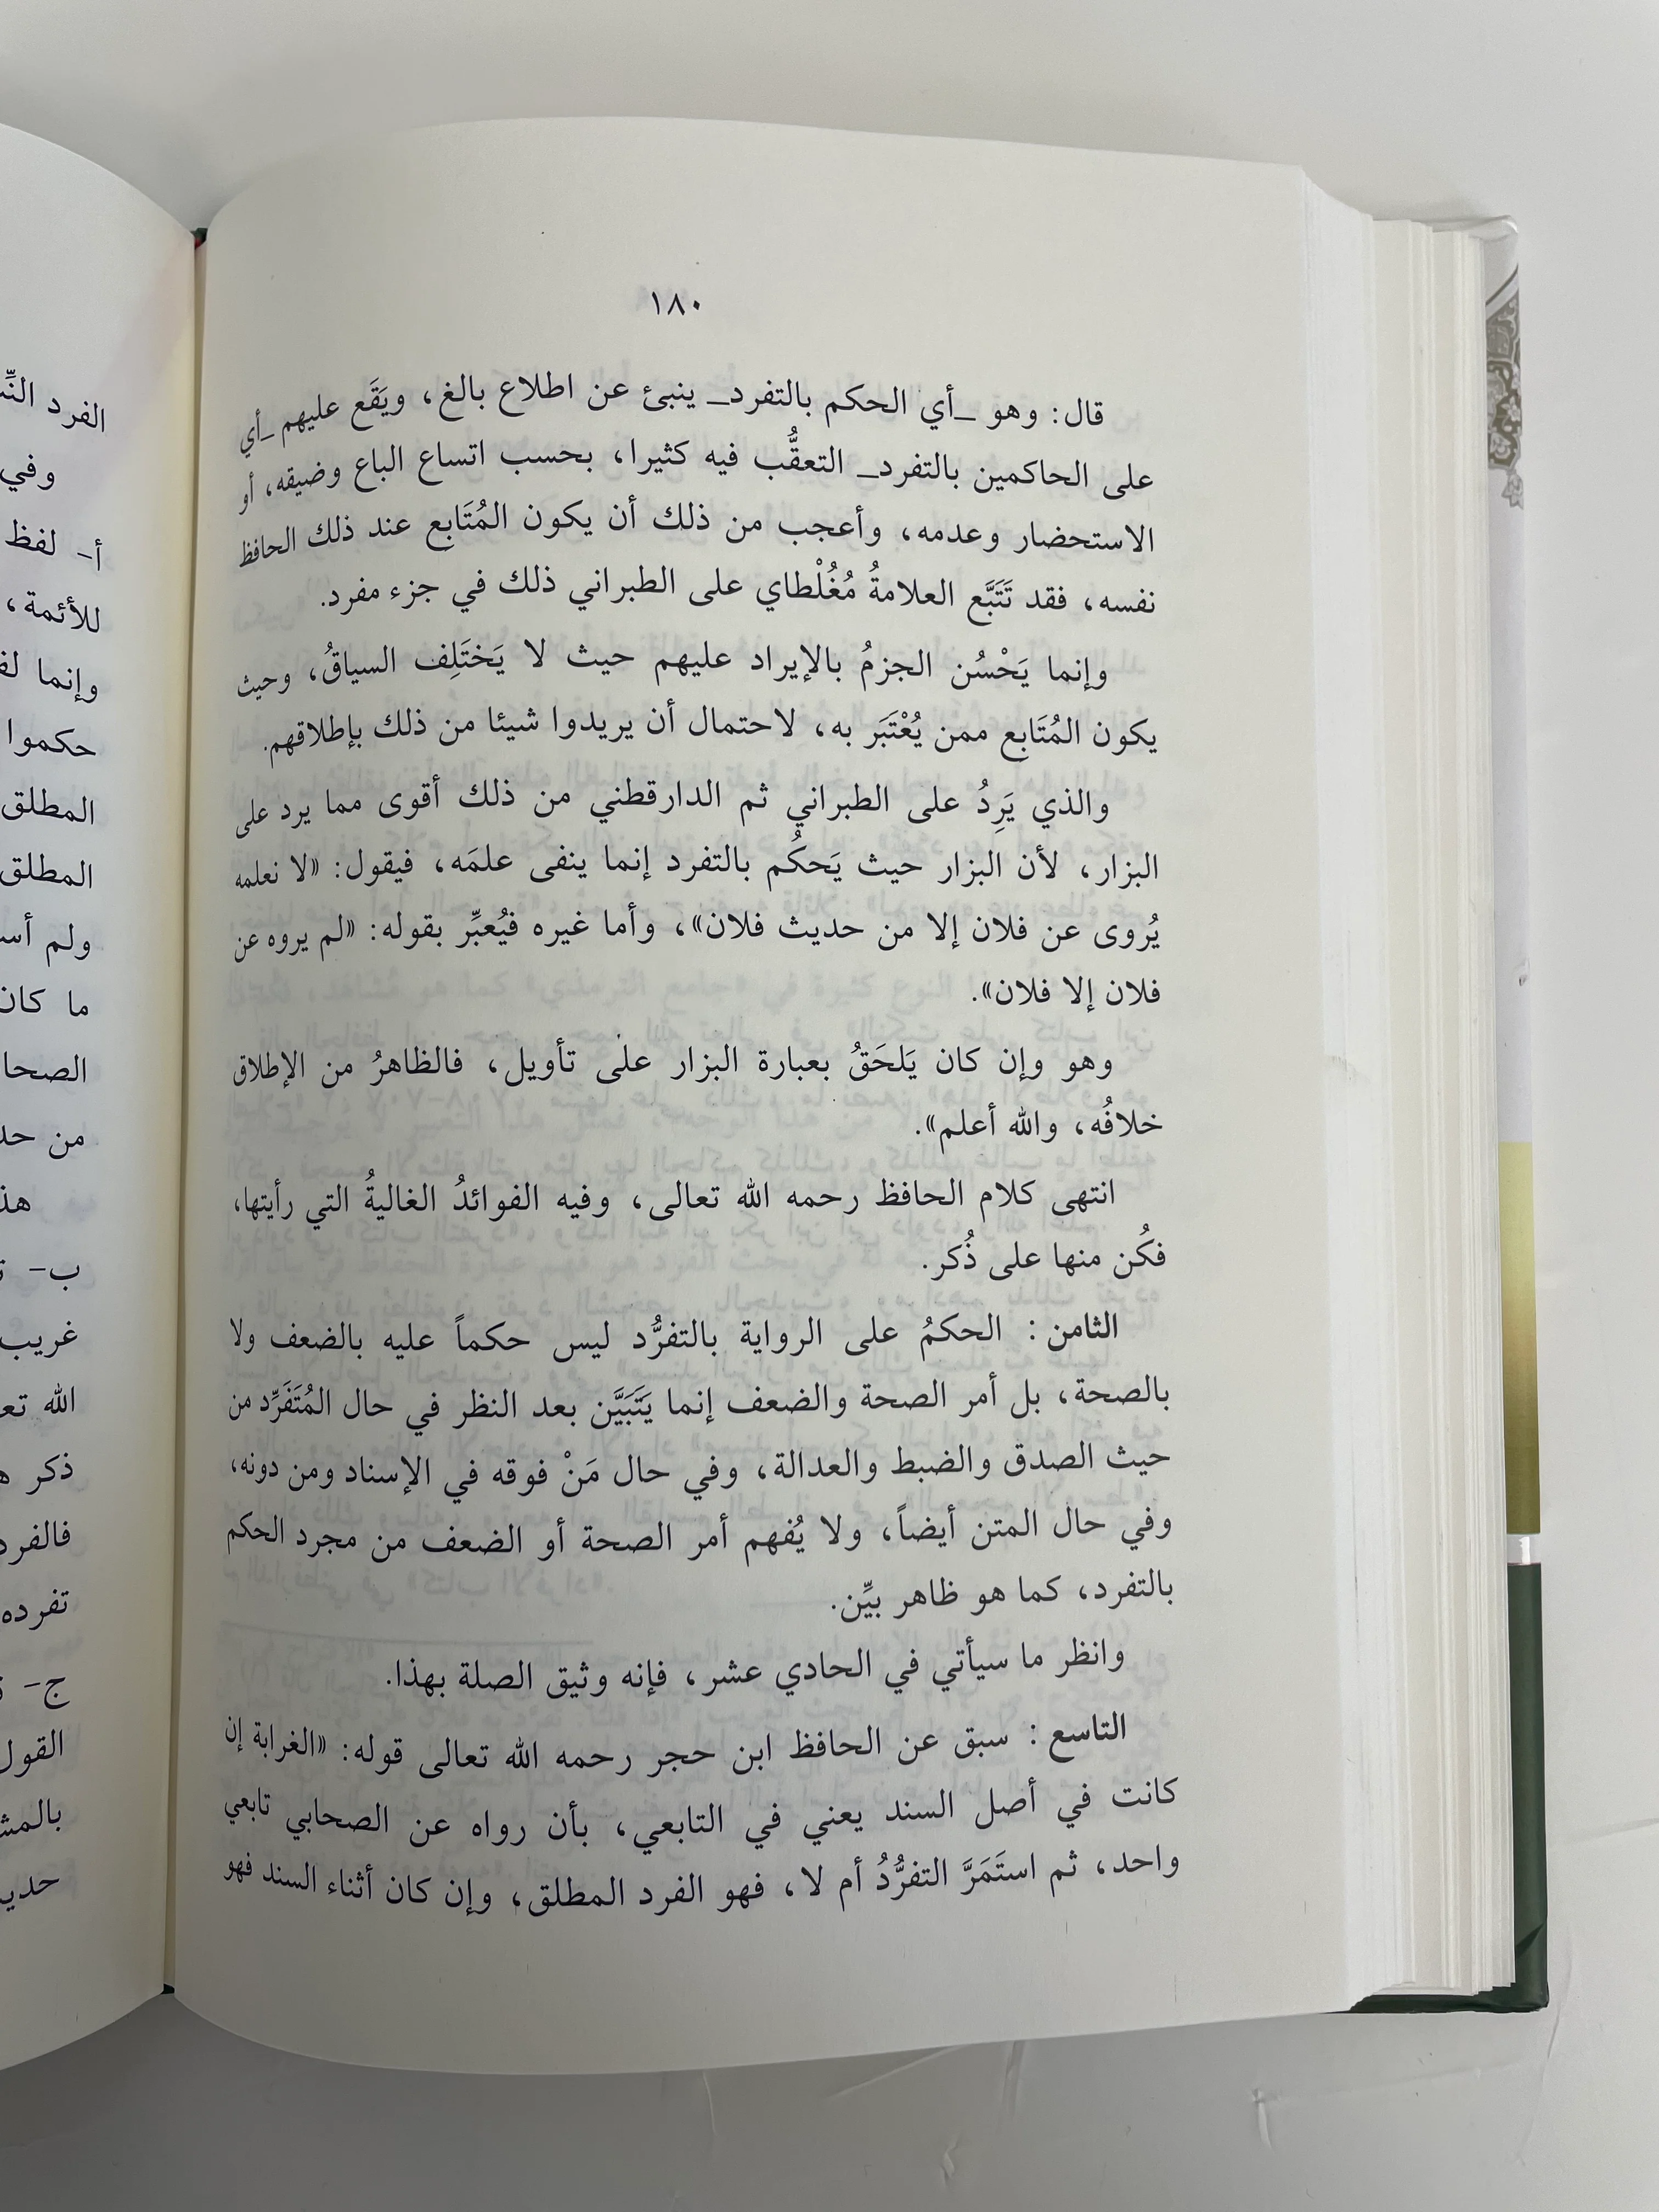 ١٨٠
قال: وهو _أي الحكم بالتفرد_ ينبئ عن اطلاع بالغ، ويَقَع عليهم _أي
على الحاكمين بالتفرد_ التعقُّب فيه كثيرا، بحسب اتساع الباع وضيقه، أو
الاستحضار وعدمه، وأعجب من ذلك أن يكون المُتَابِع عند ذلك الحافظ
نفسه، فقد تَتَبَّع العلامةُ مُغُلْطاي على الطبراني ذلك في جزء مفرد.
وإنما يَحْسُن الجزمُ بالإيراد عليهم حيث لا يَختَلِف السياقُ، وحيث
يكون المُتَابع ممن يُعْتَبَر به، لاحتمال أن يريدوا شيئا من ذلك بإطلاقهم.
والذي يَرِدُ على الطبراني ثم الدارقطني من ذلك أقوى مما يرد على
البزار، لأن البزار حيث يَحكُم بالتفرد إنما ينفى علمَه، فيقول: «لا نعلمه
يُروى عن فلان إلا من حديث فلان»، وأما غيره فيُعبِّر بقوله: «لم يروه عن
فلان إلا فلان».
وهو وإن كان يَلحَقُ بعبارة البزار على تأويل، فالظاهرُ من الإطلاق
خلافُه، والله أعلم».
انتهى كلام الحافظ رحمه الله تعالى، وفيه الفوائدُ الغاليةُ التي رأيتها،
فكُن منها على ذُكر.
الثامن : الحكمُ على الرواية بالتفرُّد ليس حكماً عليه بالضعف ولا
بالصحة، بل أمر الصحة والضعف إنما يَتَبَيَّن بعد النظر في حال المُتَفَرِّد من
حيث الصدق والضبط والعدالة، وفي حال مَنْ فوقه في الإسناد ومن دونه،
وفي حال المتن أيضاً، ولا يُفهم أمر الصحة أو الضعف من مجرد الحكم
بالتفرد، كما هو ظاهر بيِّن.
وانظر ما سيأتي في الحادي عشر، فإنه وثيق الصلة بهذا.
التاسع : سبق عن الحافظ ابن حجر رحمه الله تعالى قوله: «الغرابة إن
كانت في أصل السند يعني في التابعي، بأن رواه عن الصحابي تابعي
واحد، ثم استَمَرَّ التفرُّدُ أم لا، فهو الفرد المطلق، وإن كان أثناء السند فهو
الفرد
وفي
أ- لفظ
للأئمة،
وإنما
حكموا
المطلق
المطلق
ولم
ما
من
ب-
غريب
الله
ذكر
تفرده
ج-
القول